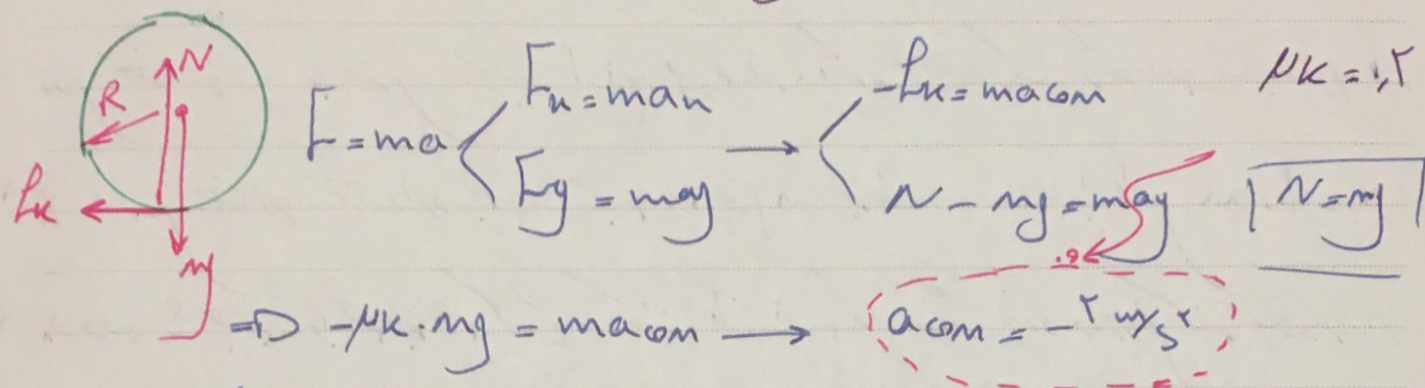 N
R
fk
mg
F = ma
Fx = max
Fy = may
-fk = macom
N - mg = may
μk = ۰,۲
N = mg
⇒ -μk . mg = macom → acom = -۲ m/s۲